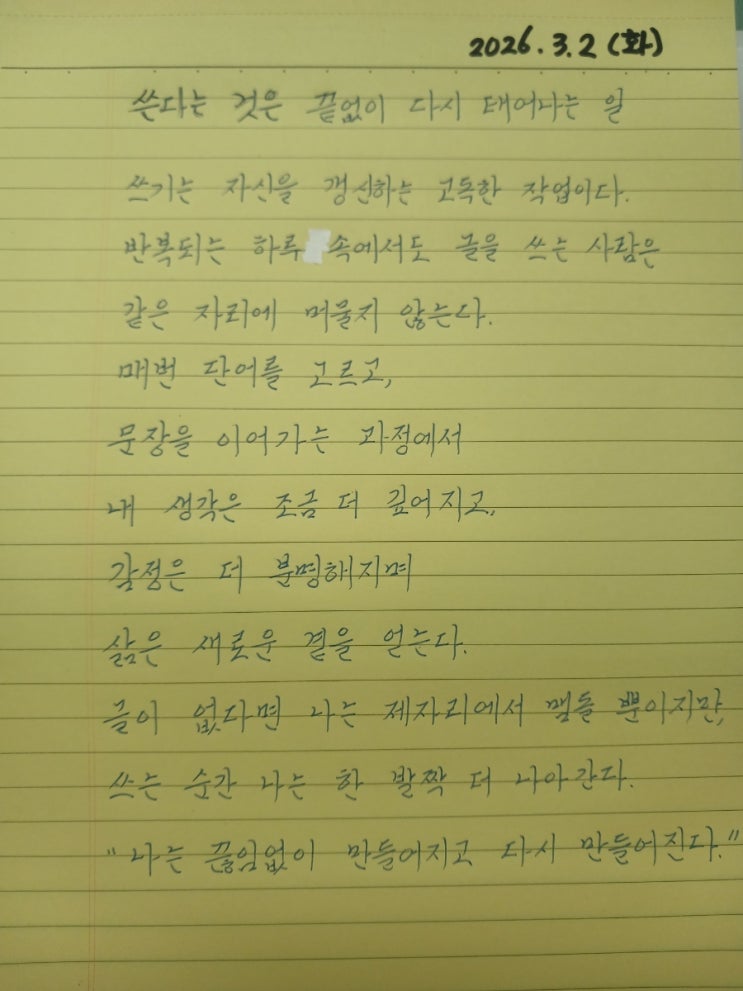 2026.3.2 (화)
쓴다는 것은 끝없이 다시 태어나는 일
쓰기는 자신을 갱신하는 고독한 작업이다.
반복되는 하루 속에서도 글을 쓰는 사람은
같은 자리에 머물지 않는다.
매번 단어를 고르고,
문장을 이어가는 과정에서
내 생각은 조금 더 깊어지고,
감정은 더 분명해지며
삶은 새로운 곁을 얻는다.
글이 없다면 나는 제자리에서 맴돌 뿐이지만,
쓰는 순간 나는 한 발짝 더 나아간다.
"나는 끊임없이 만들어지고 다시 만들어진다."